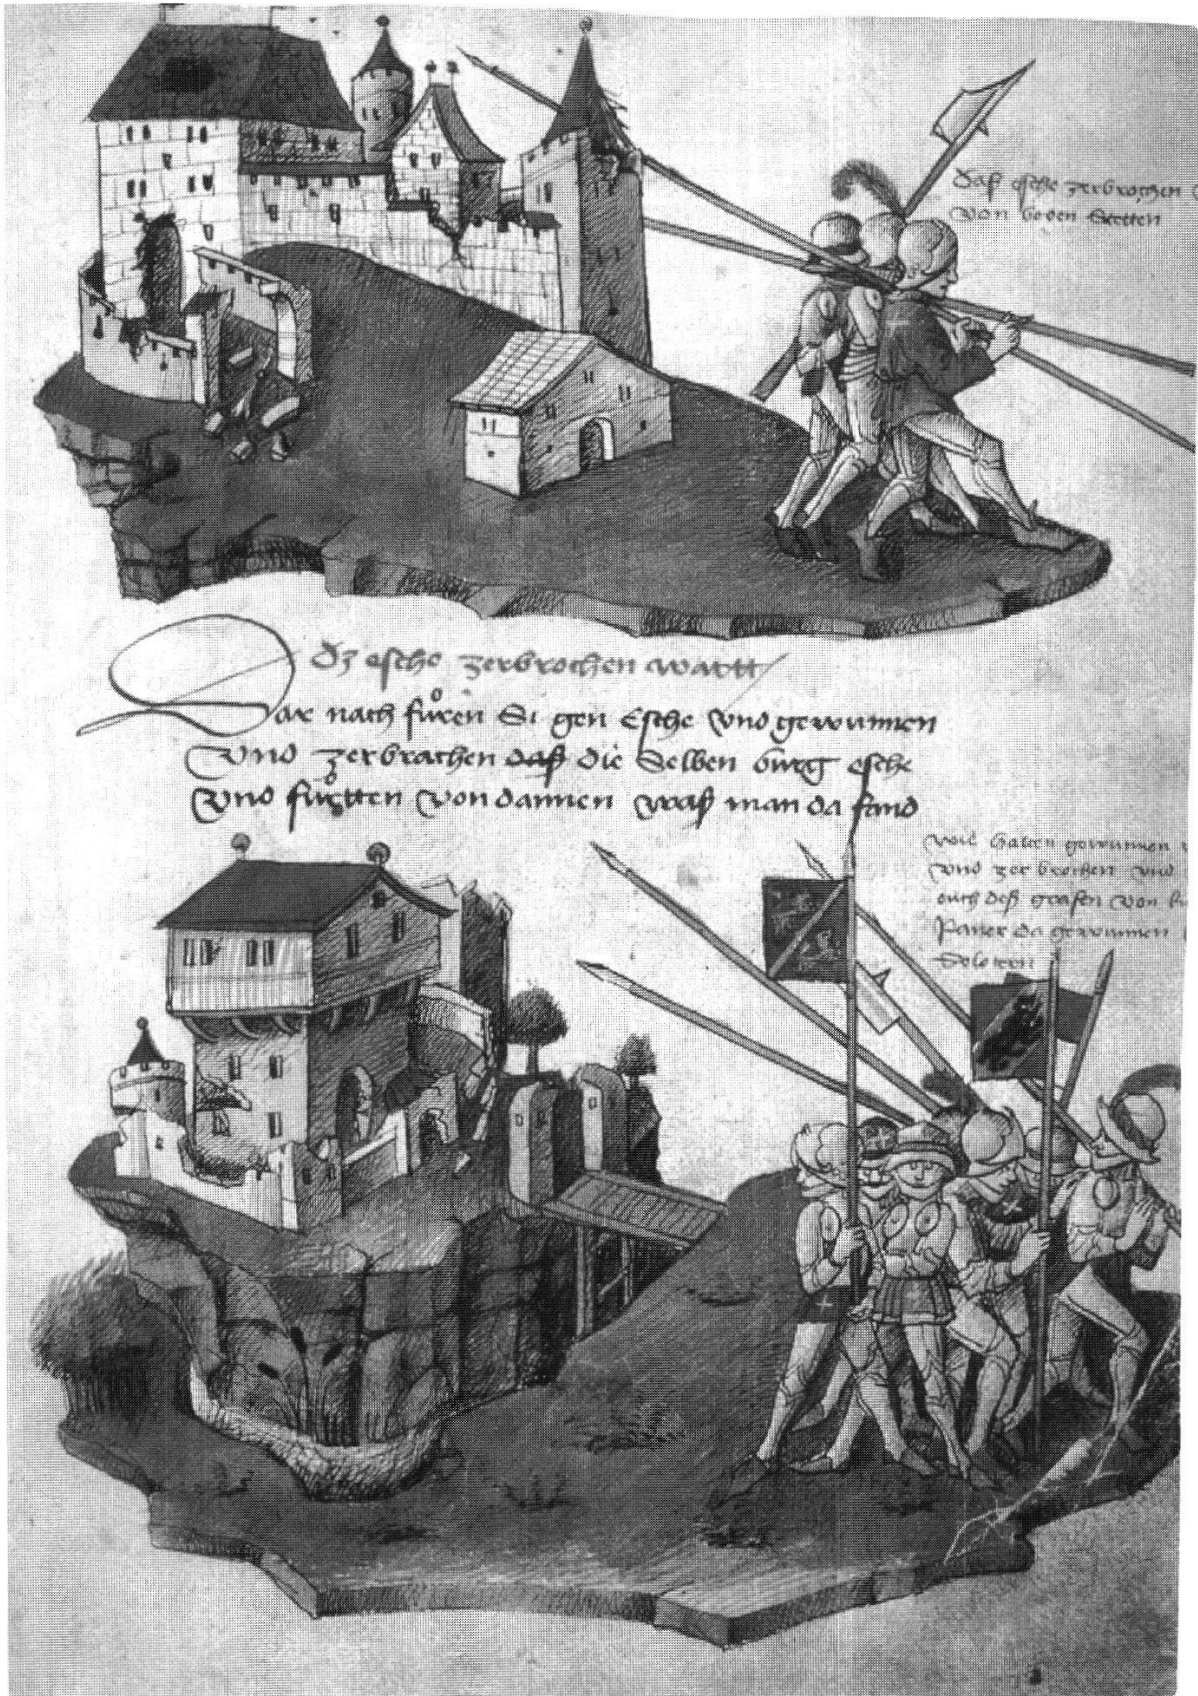 Daß esche zerbrochen
von beden Stetten
Dz esche zerbrochen wartt
Dar nach fůren Si gen Esche vnd gewunnen
Vnd zerbrachen daß die Selben burg esche
Vnd fůrtten von dannen waß man da fand
wie hatten gewunnen
vnd zer brochen vnd
ouch deß grafen von
Paner da gewunnen